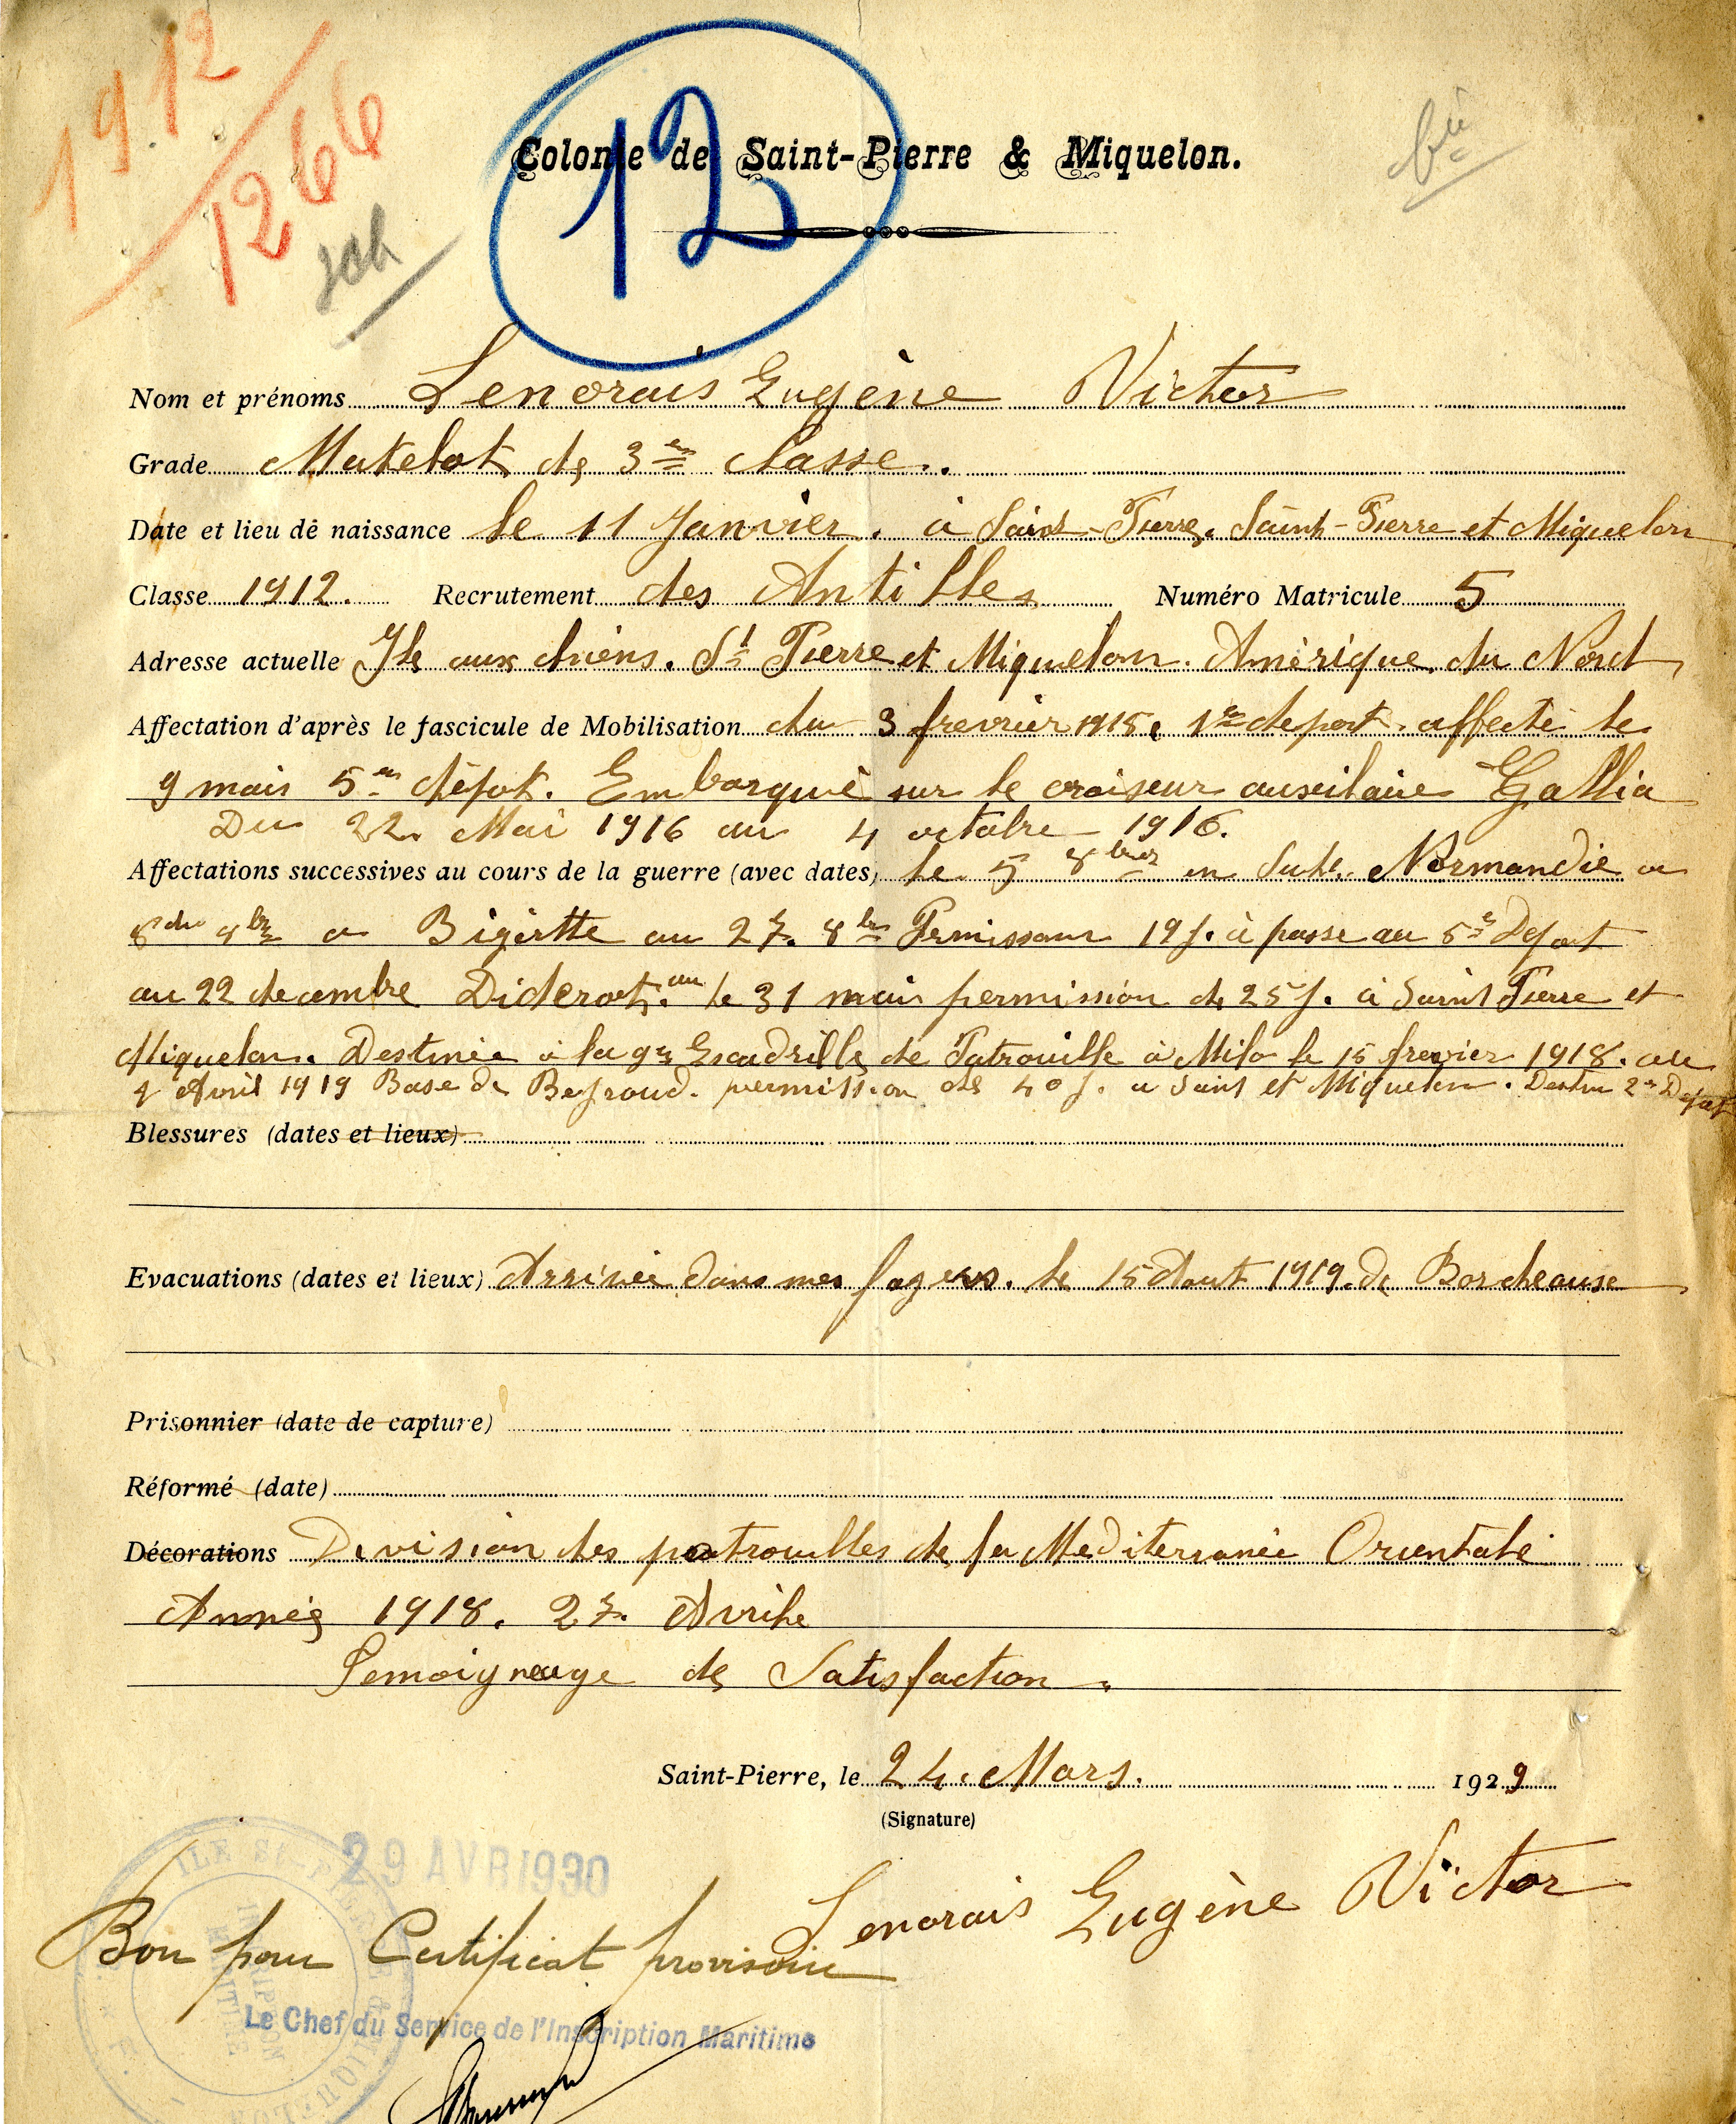 1912
1266
12
Colonie de Saint-Pierre & Miquelon.
Nom et prénoms Lenorais Eugène Victor
Grade Matelot de 3em classe.
Date et lieu de naissance le 11 Janvier. à Saint-Pierre. Saint-Pierre et Miquelon
Classe 1912. Recrutement des Antilles Numéro Matricule 5
Adresse actuelle Ile aux chiens. St Pierre et Miquelon. Amérique du Nord
Affectation d'après le fascicule de Mobilisation du 3 frevrier 1915. 1er depot. affecté le
9 mais 5em dépot. Embarqué sur le croiseur auxilaire Gallia
Du 22. Mai 1916 au 4 octobre 1916.
Affectations successives au cours de la guerre (avec dates) le 5 8brer en Normandie a
8 du 8bre a Bizertte au 27. 8bre 19 j. à passe au 5e Depot
au 22 decembre Diderot. au le 31 mais permission de 25 j. à Saint Pierre et
Miquelon. Destinée à la 9em Escadrille de Patrouille à Milo le 15 frevrier 1918. au
Avril 1919 Base de permission de 40 j. a Saint et Miquelon. Destin 2em Depot
Blessures (dates et lieux)
Evacuations (dates et lieux) Arrivée dans mes foyers. le 15 Aout 1919. de Bordeause
Prisonnier (date de capture)
Réformé (date)
Décorations Division des patrouilles de la Mediterranée Orientale
Année 1918. 27. Avrile
Temoigneage de Satisfaction.
Saint-Pierre, le 24. Mars. 1929
(Signature)
29 AVR 1930
Lenorais Eugène Victor
Bon pour Certificat provisoire
Le Chef du Service de l'Inscription Maritime